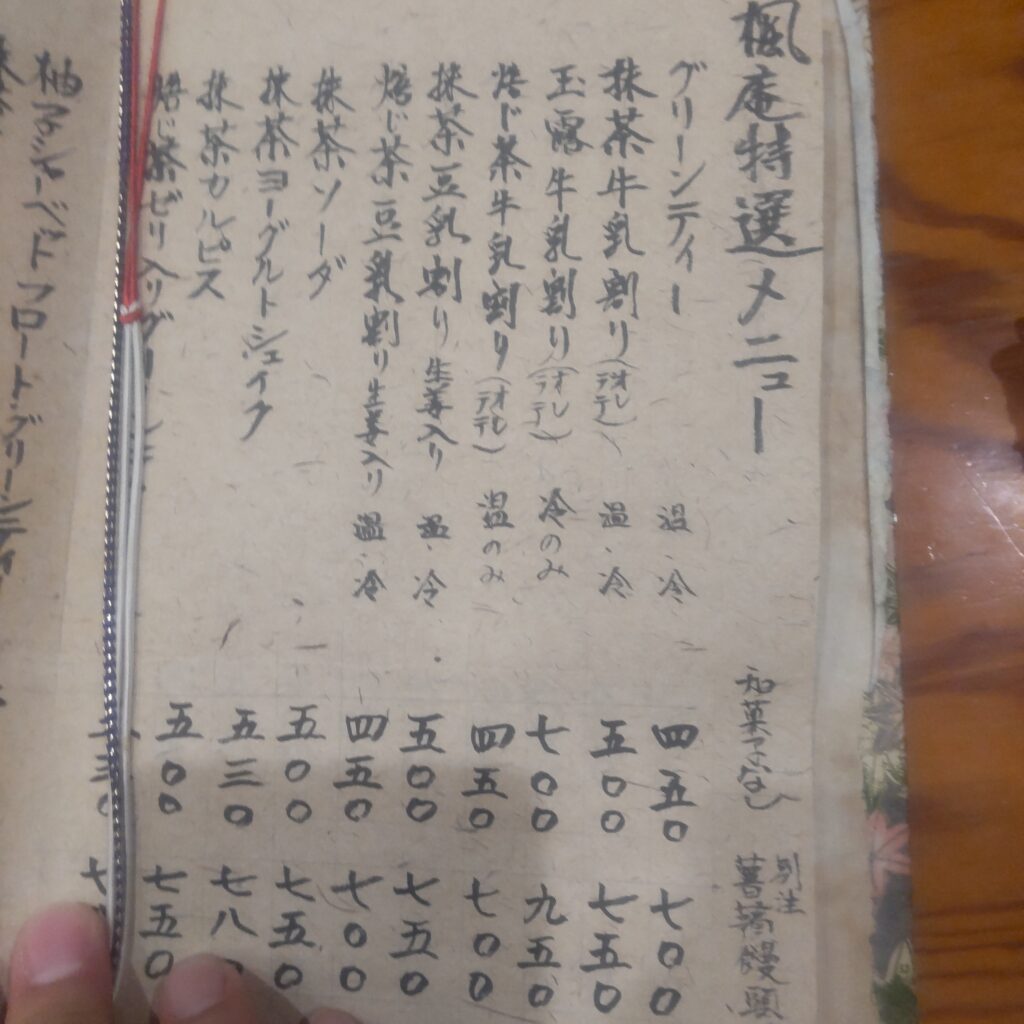 楓庵特選メニュー 和菓子なし 別注 薯蕷饅頭
グリーンティー 温・冷 四五〇 七〇〇
抹茶牛乳割り 温・冷 五〇〇 七五〇
玉露牛乳割り 冷のみ 七〇〇 九五〇
焙じ茶牛乳割り 温のみ 四五〇 七〇〇
抹茶豆乳割り 生姜入り 温・冷 五〇〇 七五〇
焙じ茶豆乳割り生姜入り 温・冷 四五〇 七〇〇
抹茶ソーダ 五〇〇 七五〇
抹茶ヨーグルトシェイク 五三〇 七八
抹茶カルピス 五〇〇 七五〇
焙じ茶ゼリ入りグリー 三〇 七
柚子シャーベットフロート・グリーンティ